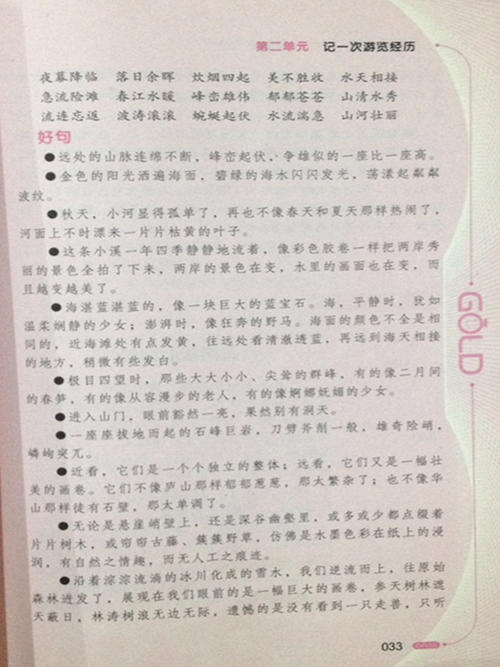 第二单元 记一次游览经历
夜幕降临 落日余晖 炊烟四起 美不胜收 水天相接
急流险滩 春江水暖 峰峦雄伟 郁郁苍苍 山清水秀
流连忘返 波涛滚滚 蜿蜒起伏 水流湍急 山河壮丽
好句
●远处的山脉连绵不断，峰峦起伏，争雄似的一座比一座高。
●金色的阳光洒遍海面，碧绿的海水闪闪发光，荡漾起粼粼
波纹。
●秋天，小河显得孤单了，再也不像春天和夏天那样热闹了，
河面上不时漂来一片片枯黄的叶子。
●这条小溪一年四季静静地流着，像彩色胶卷一样把两岸秀
丽的景色全拍了下来，两岸的景色在变，水里的画面也在变，而
且越变越美了。
●海湛蓝湛蓝的，像一块巨大的蓝宝石。海，平静时，犹如
温柔娴静的少女；澎湃时，像狂奔的野马。海面的颜色不全是相
同的，近海滩处有点发黄，往远处看清澈透蓝，再远到海天相接
的地方，稍微有些发白。
●极目四望时，那些大大小小、尖耸的群峰，有的像二月间
的春笋，有的像从容漫步的老人，有的像婀娜妩媚的少女。
●进入山门，眼前豁然一亮，果然别有洞天。
●一座座拔地而起的石峰巨岩，刀劈斧削一般，雄奇险峭，
嶙峋突兀。
●近看，它们是一个个独立的整体；远看，它们又是一幅壮
美的画卷。它们不像庐山那样郁郁葱葱，那太繁杂了；也不像华
山那样徒有石壁，那太单调了。
●无论是悬崖峭壁上，还是深谷幽壑里，或多或少都点缀着
片片树木，或帘帘古藤、蔟蔟野草，仿佛是水墨色彩在纸上的浸
润，有自然之情趣，而无人工之痕迹。
●沿着淙淙流淌的冰川化成的雪水，我们逆流而上，往原始
森林进发了，展现在我们眼前的是一幅巨大的画卷，参天树林遮
天蔽日，林涛树浪无边无际，遗憾的是没有看到一只走兽，只听
GOLD
033